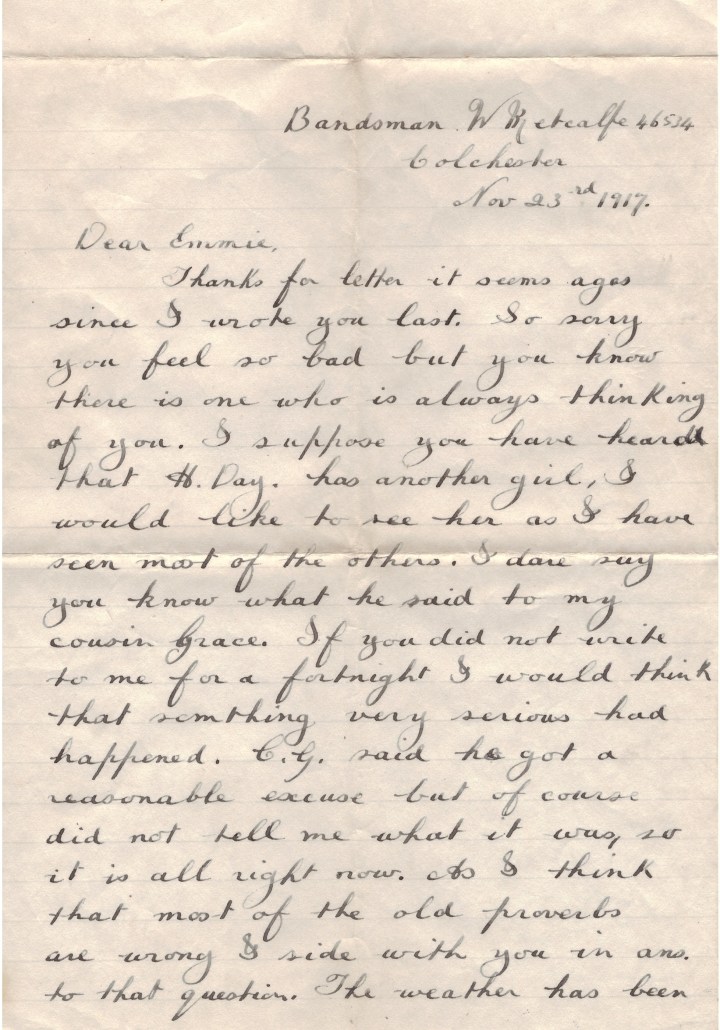 Bandsman W Metcalfe 46534
Colchester
Nov 23rd 1917.
Dear Emmie,
Thanks for letter it seems ages
since I wrote you last. So sorry
you feel so bad but you know
there is one who is always thinking
of you. I suppose you have heard
that H. Day. has another girl, I
would like to see her as I have
seen most of the others. I dare say
you know what he said to my
cousin Grace. If you did not write
to me for a fortnight I would think
that somthing very serious had
happened. C.G. said he got a
reasonable excuse but of course
did not tell me what it was, so
it is all right now. As I think
that most of the old proverbs
are wrong I side with you in ans.
to that question. The weather has been